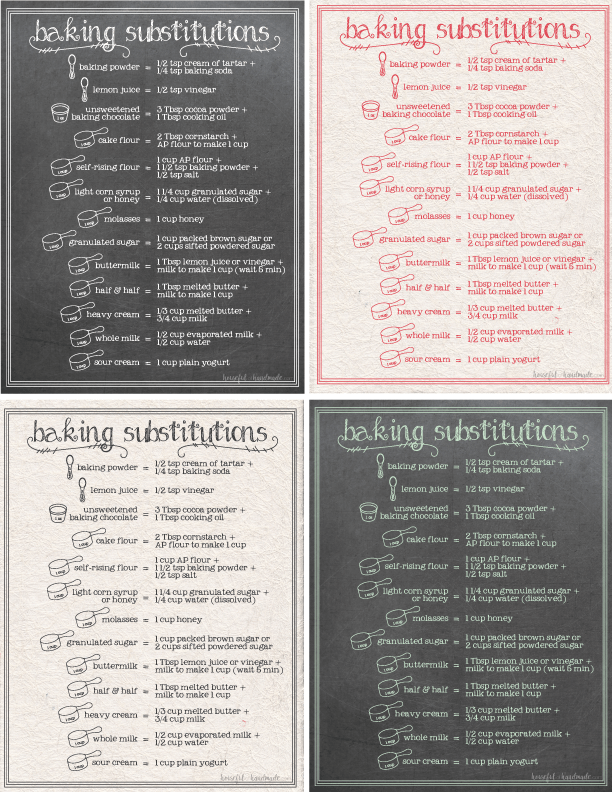 baking substitutions
baking powder = 1/2 tsp cream of tartar +
1/4 tsp baking soda
lemon juice = 1/2 tsp vinegar
unsweetened
baking chocolate = 3 Tbsp cocoa powder +
1 Tbsp cooking oil
cake flour = 2 Tbsp cornstarch +
AP flour to make 1 cup
self-rising flour = 1 cup AP flour +
1 1/2 tsp baking powder +
1/2 tsp salt
light corn syrup
or honey = 1 1/4 cup granulated sugar +
1/4 cup water (dissolved)
molasses = 1 cup honey
granulated sugar = 1 cup packed brown sugar or
2 cups sifted powdered sugar
buttermilk = 1 Tbsp lemon juice or vinegar +
milk to make 1 cup (wait 5 min)
half & half = 1 Tbsp melted butter +
milk to make 1 cup
heavy cream = 1/3 cup melted butter +
3/4 cup milk
whole milk = 1/2 cup evaporated milk +
1/2 cup water
sour cream = 1 cup plain yogurt
houseful of handmade
baking substitutions
baking powder = 1/2 tsp cream of tartar +
1/4 tsp baking soda
lemon juice = 1/2 tsp vinegar
unsweetened
baking chocolate = 3 Tbsp cocoa powder +
1 Tbsp cooking oil
cake flour = 2 Tbsp cornstarch +
AP flour to make 1 cup
self-rising flour = 1 cup AP flour +
1 1/2 tsp baking powder +
1/2 tsp salt
light corn syrup
or honey = 1 1/4 cup granulated sugar +
1/4 cup water (dissolved)
molasses = 1 cup honey
granulated sugar = 1 cup packed brown sugar or
2 cups sifted powdered sugar
buttermilk = 1 Tbsp lemon juice or vinegar +
milk to make 1 cup (wait 5 min)
half & half = 1 Tbsp melted butter +
milk to make 1 cup
heavy cream = 1/3 cup melted butter +
3/4 cup milk
whole milk = 1/2 cup evaporated milk +
1/2 cup water
sour cream = 1 cup plain yogurt
houseful of handmade
baking substitutions
baking powder = 1/2 tsp cream of tartar +
1/4 tsp baking soda
lemon juice = 1/2 tsp vinegar
unsweetened
baking chocolate = 3 Tbsp cocoa powder +
1 Tbsp cooking oil
cake flour = 2 Tbsp cornstarch +
AP flour to make 1 cup
self-rising flour = 1 cup AP flour +
1 1/2 tsp baking powder +
1/2 tsp salt
light corn syrup
or honey = 1 1/4 cup granulated sugar +
1/4 cup water (dissolved)
molasses = 1 cup honey
granulated sugar = 1 cup packed brown sugar or
2 cups sifted powdered sugar
buttermilk = 1 Tbsp lemon juice or vinegar +
milk to make 1 cup (wait 5 min)
half & half = 1 Tbsp melted butter +
milk to make 1 cup
heavy cream = 1/3 cup melted butter +
3/4 cup milk
whole milk = 1/2 cup evaporated milk +
1/2 cup water
sour cream = 1 cup plain yogurt
houseful of handmade
baking substitutions
baking powder = 1/2 tsp cream of tartar +
1/4 tsp baking soda
lemon juice = 1/2 tsp vinegar
unsweetened
baking chocolate = 3 Tbsp cocoa powder +
1 Tbsp cooking oil
cake flour = 2 Tbsp cornstarch +
AP flour to make 1 cup
self-rising flour = 1 cup AP flour +
1 1/2 tsp baking powder +
1/2 tsp salt
light corn syrup
or honey = 1 1/4 cup granulated sugar +
1/4 cup water (dissolved)
molasses = 1 cup honey
granulated sugar = 1 cup packed brown sugar or
2 cups sifted powdered sugar
buttermilk = 1 Tbsp lemon juice or vinegar +
milk to make 1 cup (wait 5 min)
half & half = 1 Tbsp melted butter +
milk to make 1 cup
heavy cream = 1/3 cup melted butter +
3/4 cup milk
whole milk = 1/2 cup evaporated milk +
1/2 cup water
sour cream = 1 cup plain yogurt
houseful of handmade